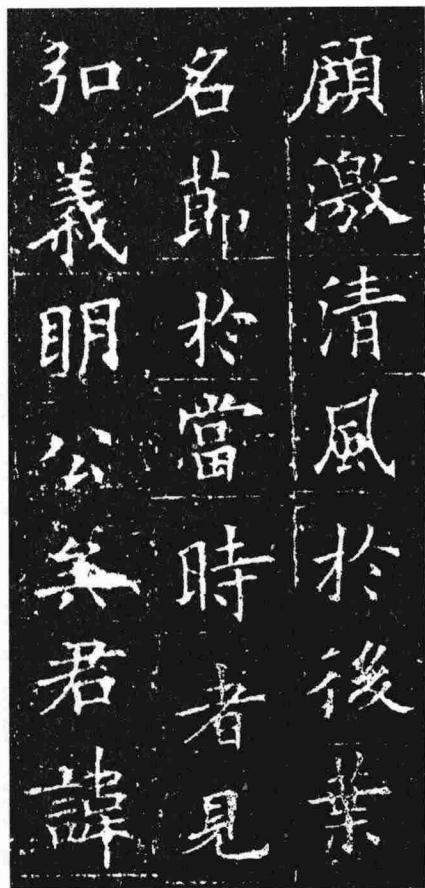 顧激清風於後葉
名節於當時者見
弘義明公矣君諱